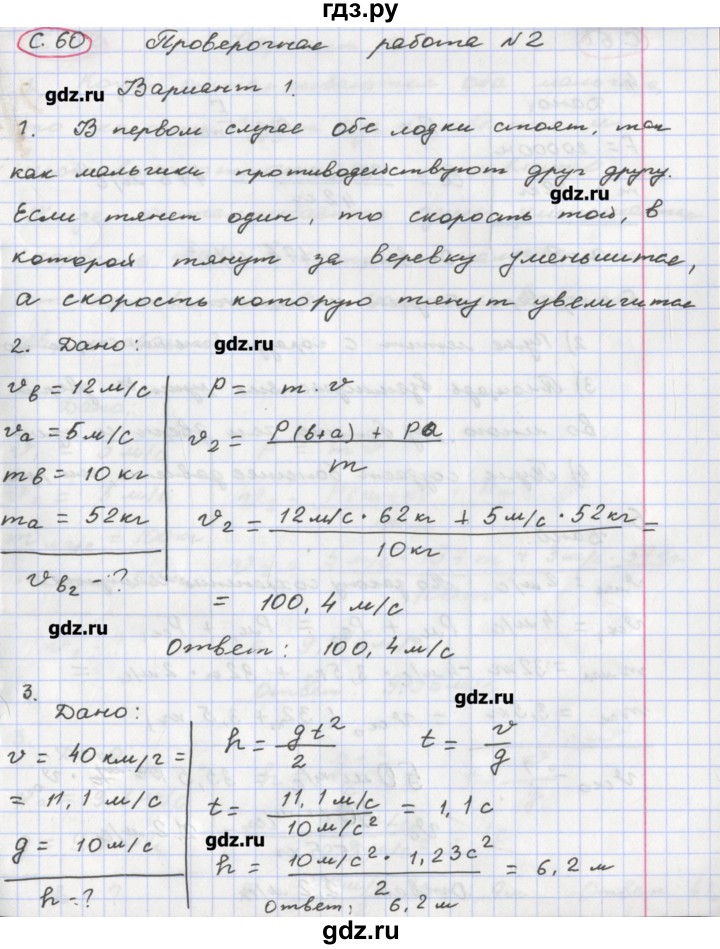 гдз.ру
С. 60 Проверочная работа №2
gdz.ru Вариант 1.
1. В первом случае обе лодки стоят, так
как мальчики противодействуют друг другу.
gdz.ru
Если тянет один, то скорость той, в
которой тянут за веревку уменьшится,
а скорость которую тянут увеличится
2. Дано: gdz.ru
v в = 12 м/с
v а = 5 м/с
m в = 10 кг
m а = 52 кг
v в₂ - ?
P = m · v
v₂ = P(в+а) + Pа / m
v₂ = 12 м/с · 62 кг + 5 м/с · 52 кг / 10 кг =
= 100,4 м/с
gdz.ru
Ответ: 100,4 м/с
3. gdz.ru
Дано:
v = 40 км/г =
= 11,1 м/с
g = 10 м/с
h = ?
h = gt² / 2 t = v / g
t = 11,1 м/с / 10 м/с² = 1,1 с
gdz.ru
h = 10 м/с² · 1,23 с² / 2 = 6,2 м
Ответ: 6,2 м